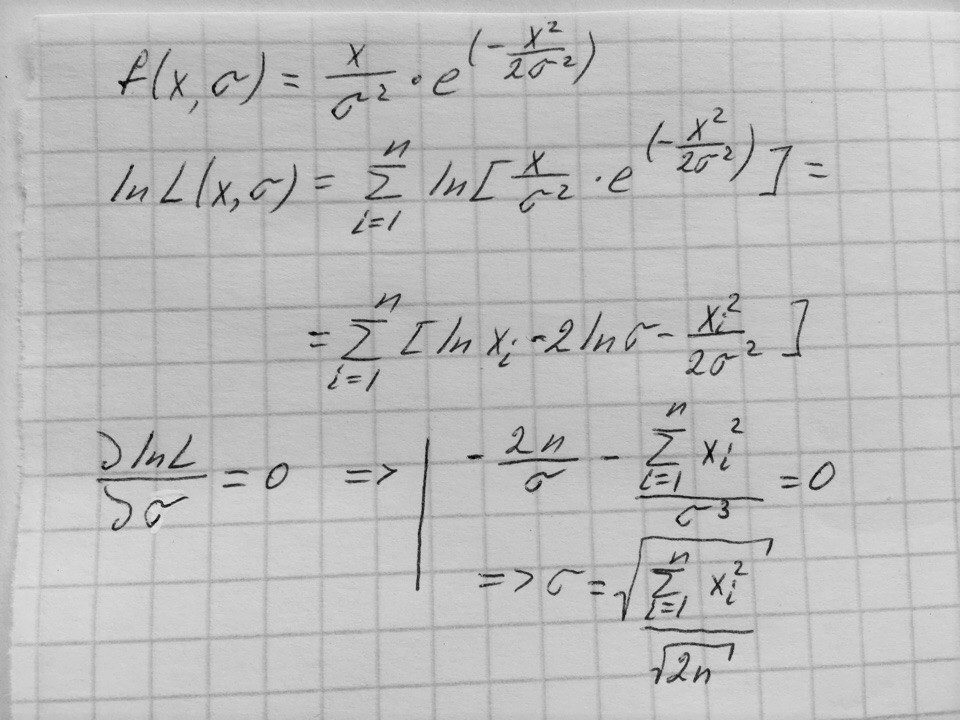 f(x, σ) = x/σ² · e^(-x²/2σ²)
ln L(x, σ) = ∑_{i=1}^{n} ln[x/σ² · e^(-x²/2σ²)] =
= ∑_{i=1}^{n} [ln x_i - 2 ln σ - x_i²/2σ²]
∂ ln L/∂σ = 0 => | - 2n/σ - ∑_{i=1}^{n} x_i²/σ³ = 0
=> σ = √(∑_{i=1}^{n} x_i²)/√(2n)